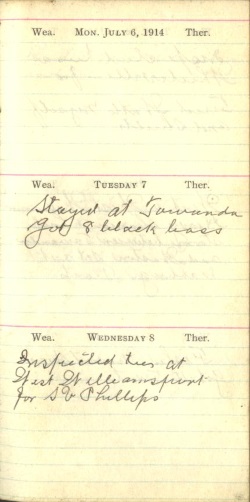 Wea. MON. JULY 6, 1914 Ther.
Wea. TUESDAY 7 Ther.
Stayed at Towanda
got 8 black bass
Wea. WEDNESDAY 8 Ther.
Inspected ties at
West Williamsport
for S V Phillips